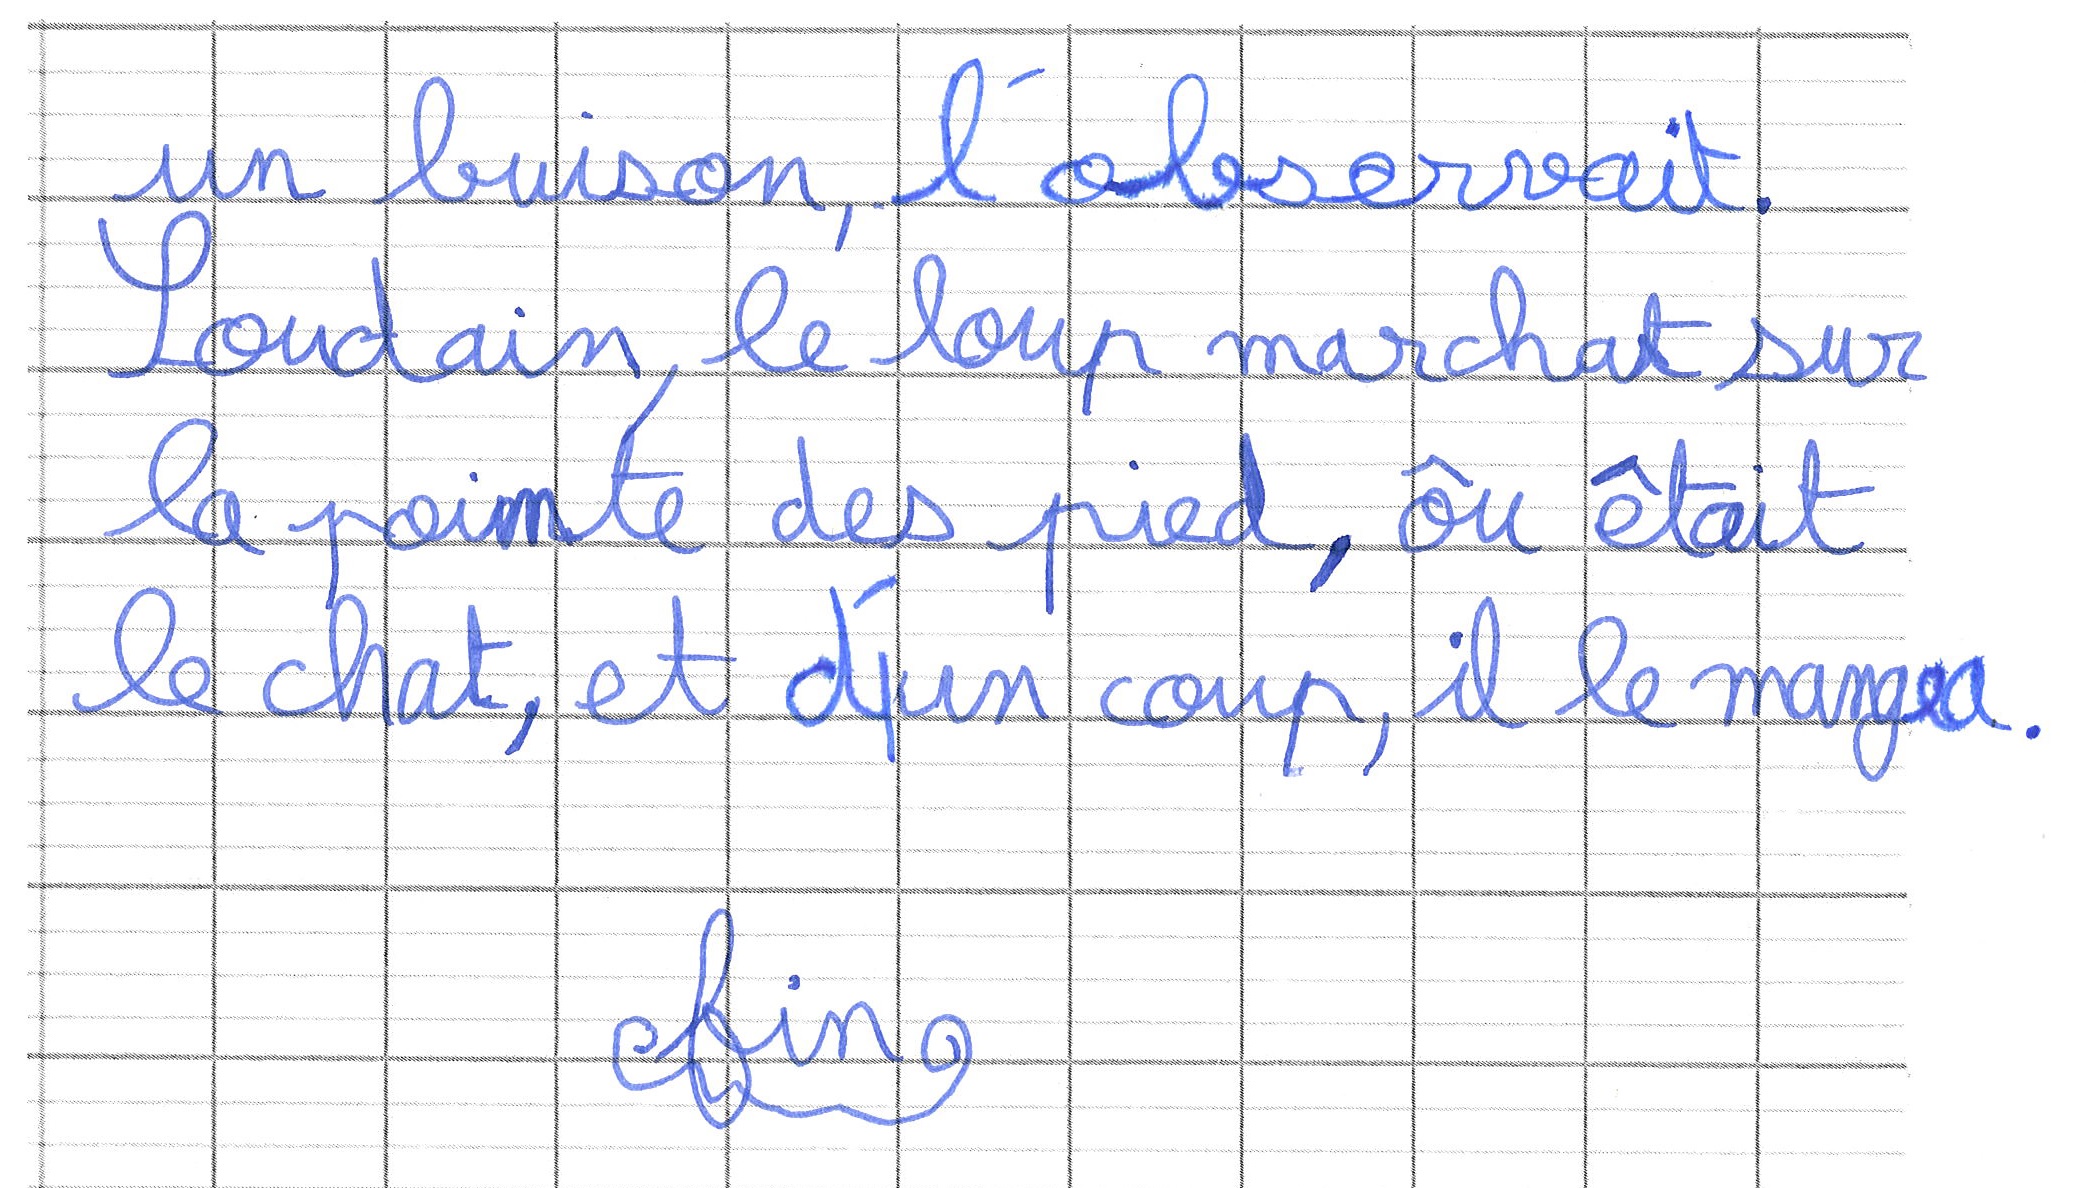 un buison, l'observait.
Soudain, le loup marchat sur
la pointe des pied, ôu êtait
le chat, et d'un coup, il le mangea.
fin